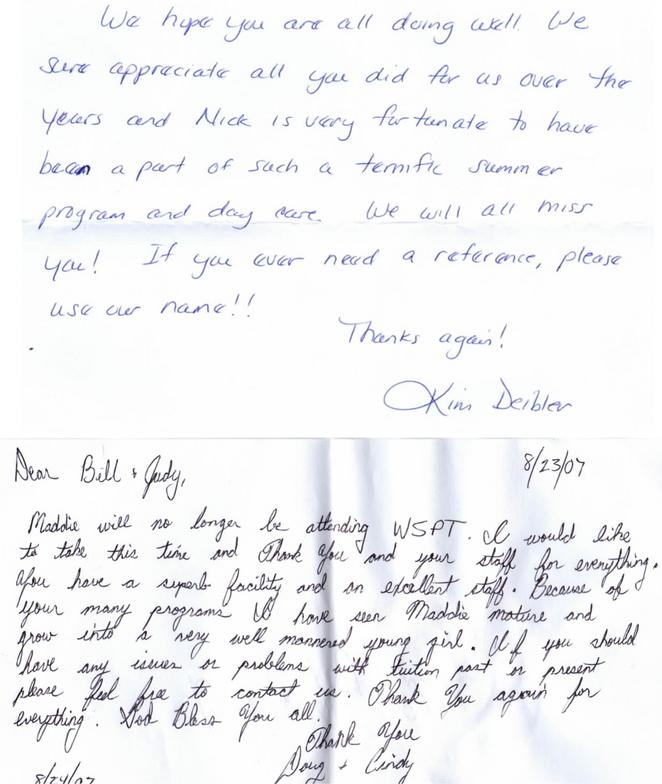 We hope you are all doing well. We
sure appreciate all you did for us over the
years and Nick is very fortunate to have
been a part of such a terrific summer
program and day care. We will all miss
you! If you ever need a reference, please
use our name!!
Thanks again!
Kim Deibler
Dear Bill + Judy,
8/23/07
Maddie will no longer be attending WSPT. I would like
to take this time and Thank You and your staff for everything.
You have a superb facility and an excellent staff. Because of
your many programs I have seen Maddie mature and
grow into a very well mannered young girl. If you should
have any issues or problems with tuition past or present
please feel free to contact us. Thank You again for
everything. God Bless You all.
Thank You
Doug + Cindy
8/24/07